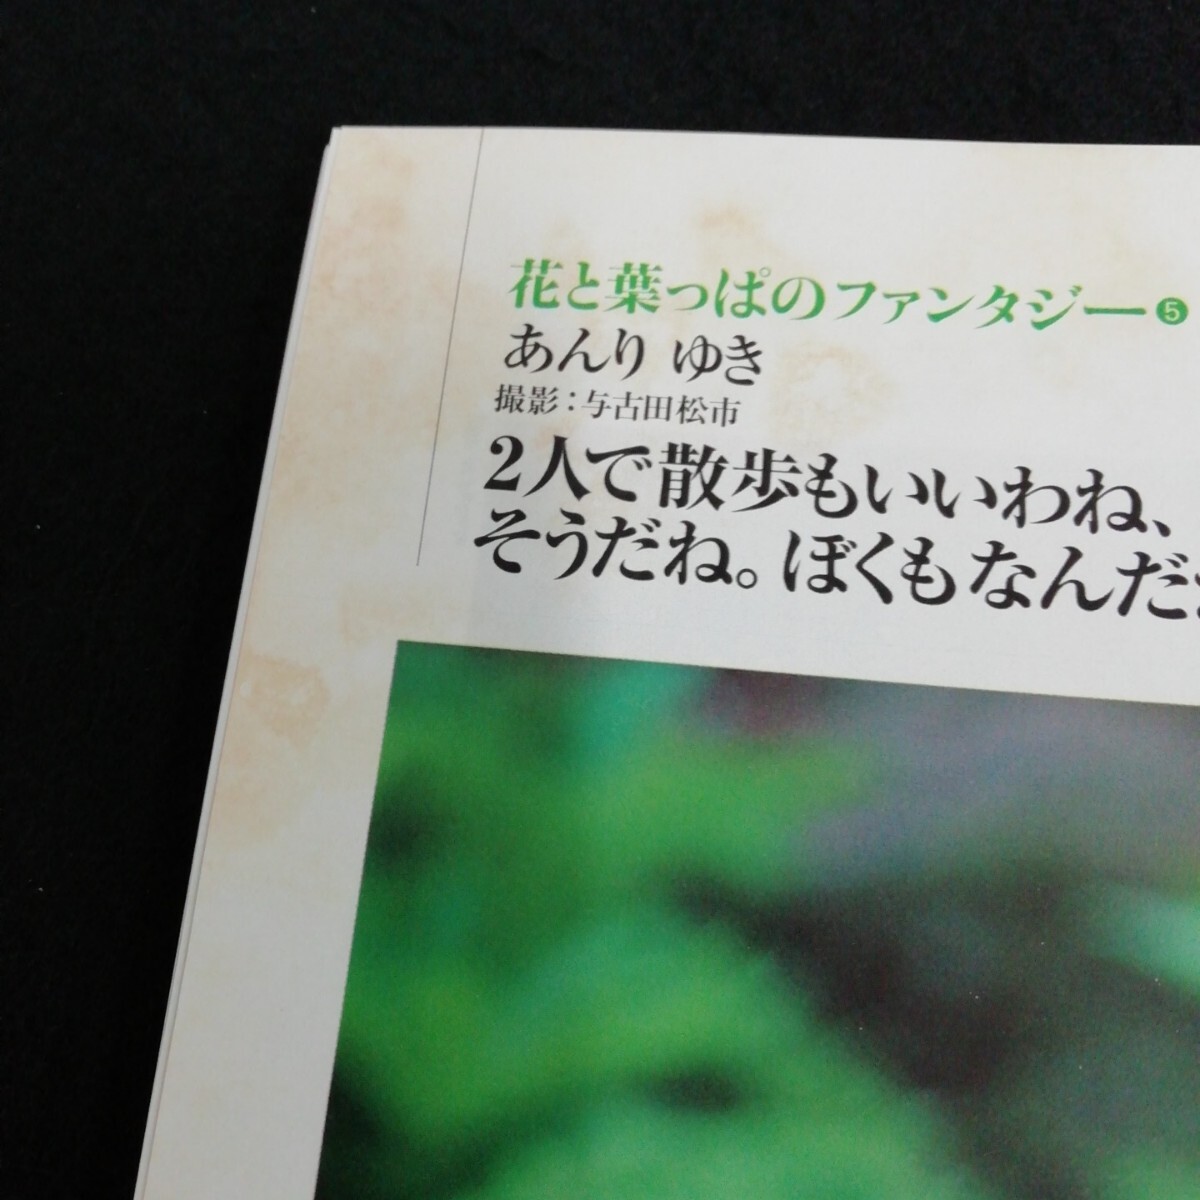 花と葉っぱのファンタジー❺
あんり ゆき
撮影：与古田松市
2人で散歩もいいわね、
そうだね。ぼくもなんだ